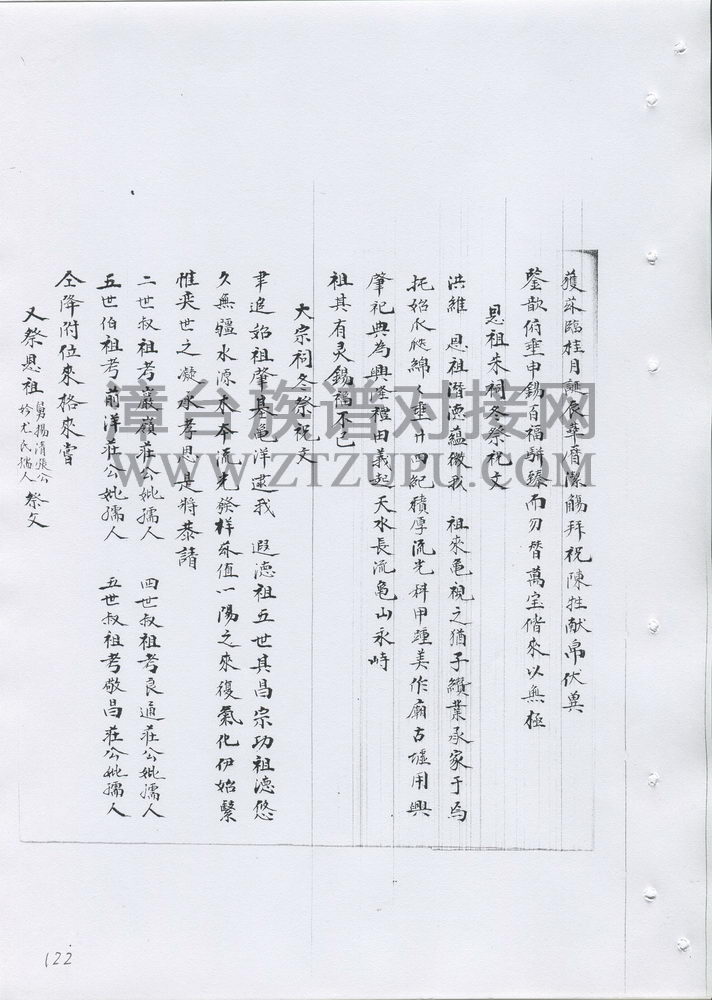 獲茲臨桂月誕辰草酒潔觴拜祝陳牲献帛伏冀
鑒歆俯垂申錫百福駢臻而勿替萬宝偕來以無極
恩祖朱祠冬祭祝文
洪維 恩祖潛德蘊微我 祖來龟視之猶子纘業承家于焉
托始瓜瓞綿〻垂廿四紀積厚流光科甲踵美作廟古墟用興
肇祀典為興隆禮由義起天水長流龟山永峙
祖其有灵錫福不已
大宗祠冬祭祝文
聿追始祖肇基龟洋逮我 遐德祖五世其昌宗功祖德悠
久無疆水源木本流光發祥茲值一陽之來復氣化伊始繄
惟奕世之凝承孝思是將恭請
二世叔祖考巖嶺莊公妣孺人 四世叔祖考良通莊公妣孺人
五世伯祖考前洋莊公妣孺人 五世叔祖考敬昌莊公妣孺人
仝降附位來格來嘗
又祭恩祖舅揚清張公妗尤氏孺人祭文
漳台族谱对接网
WWW.ZTZUPU.COM
122